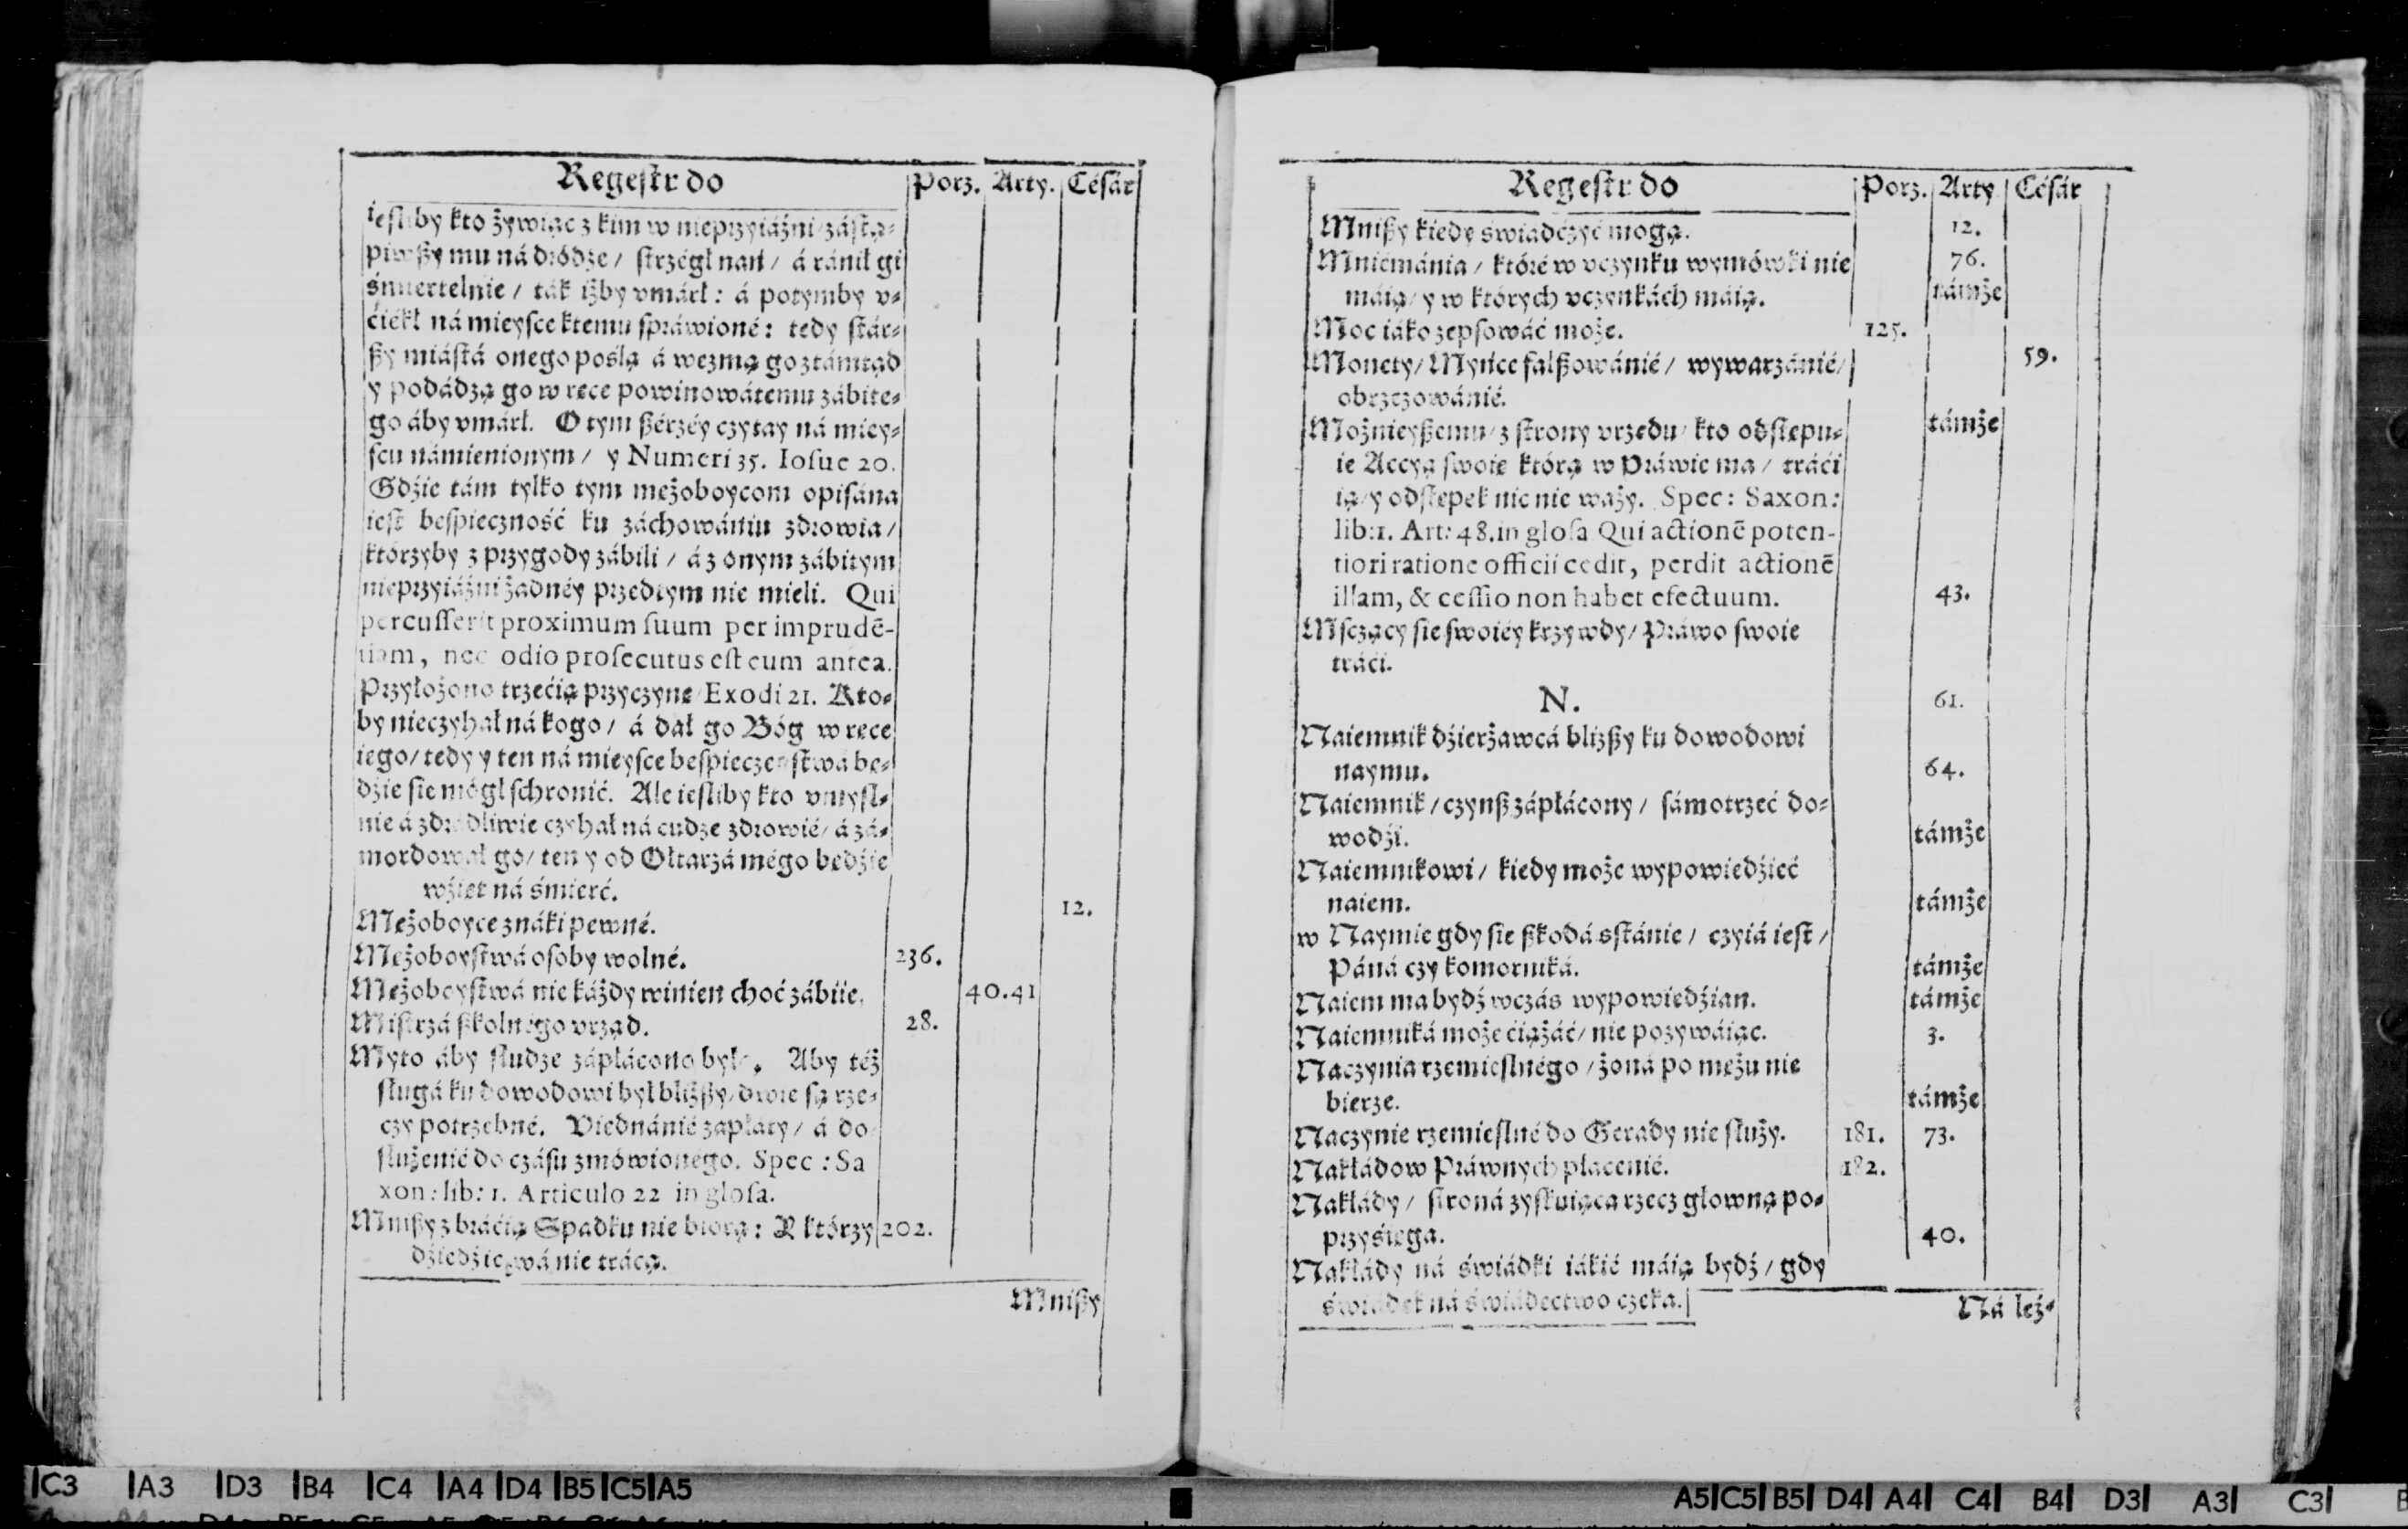 Regeſtr do Porz. Arty. Céſár
ieſliby kto żywiąc z kim w nieprzyiáźni záſtą-
piwßy mu ná dródze / ſtrzégł nań / á ránił gi
śmiertelnie / ták iżby vmárł : á potymby v-
ćiékł ná mieyſce ktemu ſpráwioné : tedy ſtár-
ßy miáſtá onego poślą á wezmą go ztámtąd
y podádzą go w ręce powinowátemu zábite-
go áby vmárł. O tym ßérzéy czytay ná miey-
ſcu námienionym / y Numeri 35. Ioſue 20.
Gdźie tám tylko tym mężoboycom opiſána
ieſt beſpieczność ku záchowániu zdrowia /
którzyby z przygody zábili / á z onym zábitym
nieprzyiáźni żadnéy przedtym nie mieli. Qui
percuſſerit proximum ſuum per imprudē-
tiam, nec odio proſecutus eſt eum antea.
Przyłożono trzećią przyczynę Exodi 21. Kto-
by nieczyhał ná kogo / á dał go Bóg w ręce
iego / tedy y ten ná mieyſce beſpieczeńſtwa bę-
dźie ſie mógł ſchronić. Ale ieſliby kto vmyſl-
nie á zdrádliwie czyhał ná cudze zdrowié / á zá-
mordował go / ten y od Ołtarzá mégo będźie
wźięt ná śmierć.
Mężoboyce znáki pewné. 12.
Mężoboyſtwá oſoby wolné. 236.
Mężoboyſtwá nie káżdy winien choć zábiie. 40.41
Miſtrzá ßkolnégo vrząd. 28.
Myto áby ſłudze zápłácono było. Aby téż
ſługá ku dowodowi był bliżßy / dwie ſą rze-
czy potrzebné. Viednánié zapłáty / á do
ſłużenié do czáſu zmówionégo. Spec : Sa
xon : lib : 1. Articulo 22 in gloſa.
Mnißy z bráćią Spadku nie biorą : Y którzy 202.
dźiedźicwá nie trácą.
Mnißy
Regeſtr do Porz. Arty Céſár
Mnißy kiedy świadczyć mogą. 12.
Mniémánia / któré w vczynku wymówki nie 76.
máią / y w których vczynkách máią. támże
Moc iáko zepſowáć może. 125.
Monety / Myńce falßowánié / wywarzánié / 59.
obrzezowánié.
Możnieyßemu / z ſtrony vrzędu / kto odſtępu- támże
ie Accyą ſwoię którą w Práwie ma / tráći
ią / y odſtępek nic nie waży. Spec : Saxon :
lib : 1. Art : 48. in gloſa Qui actionē poten-
tiori ratione officii cedit, perdit actionē
illam, & ceſſio non habet efectuum. 43.
Mſczący ſie ſwoiéy krzywdy / Práwo ſwoie
tráći.
N. 61.
Naiemnik dźierżawcá bliżßy ku dowodowi
naymu. 64.
Naiemnik / czynß zápłácony / ſámotrzeć do-
wodźi. támże
Naiemnikowi / kiedy może wypowiedźieć
naiem. támże
w Naymie gdy ſie ßkodá sſtánie / czyiá ieſt /
Páná czy komorniká. támże
Naiem ma bydź wczás wypowiedźian. támże
Naiemniká może ćiążáć / nie pozywáiąc. 3.
Naczynia rzemieſlnégo / żoná po mężu nie
bierze. támże
Naczynie rzemieſlné do Gerady nie ſłuży. 181. 73.
Nakłádow Práwnych płacenié. 182.
Nakłády / ſtroná zyſkuiąca rzecz główną po-
przyśięga. 40.
Nakłády ná świádki iákié máią bydź / gdy
świádek ná świádectwo czeka.
Ná leż-
C3 A3 D3 B4 C4 A4 D4 B5 C5 A5
A5 C5 B5 D4 A4 C4 B4 D3 A3 C3